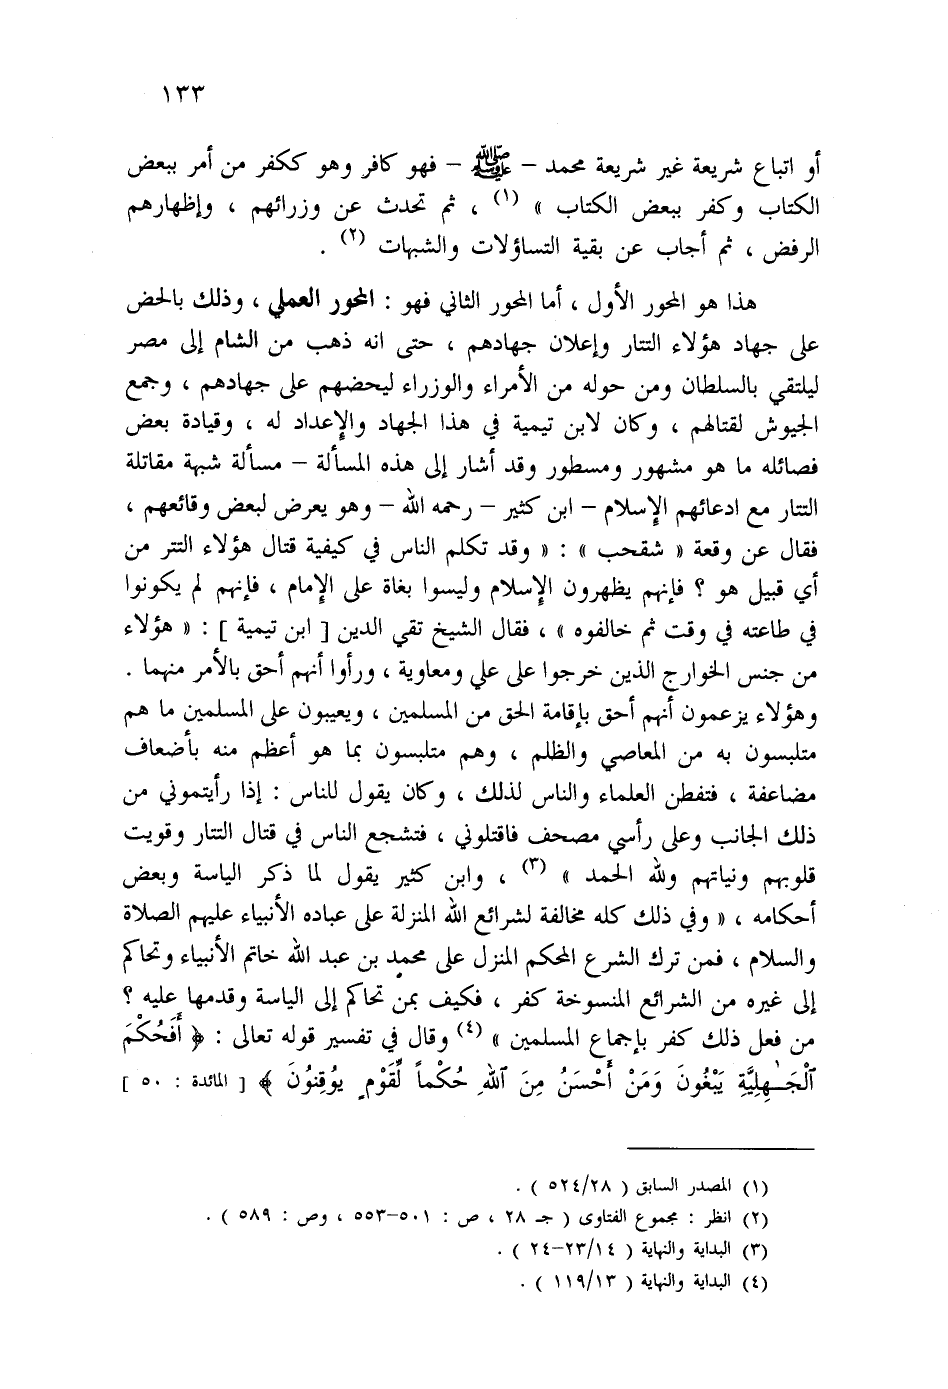 ١٣٣
أو اتباع شريعة غير شريعة محمد – ﷺ – فهو كافر وهو ككفر من أمر ببعض
الكتاب وكفر ببعض الكتاب » (١) ، ثم تحدث عن وزرائهم ، وإظهارهم
الرفض ، ثم أجاب عن بقية التساؤلات والشبهات (٢) .
هذا هو المحور الأول ، أما المحور الثاني فهو : المحور العملي ، وذلك بالحض
على جهاد هؤلاء التتار وإعلان جهادهم ، حتى انه ذهب من الشام إلى مصر
ليلتقي بالسلطان ومن حوله من الأمراء والوزراء ليحضهم على جهادهم ، وجمع
الجيوش لقتالهم ، وكان لابن تيمية في هذا الجهاد والإعداد له ، وقيادة بعض
فصائله ما هو مشهور ومسطور وقد أشار إلى هذه المسألة – مسألة شبهة مقاتلة
التتار مع ادعائهم الإسلام – ابن كثير – رحمه الله – وهو يعرض لبعض وقائعهم ،
فقال عن وقعة « شقحب » : « وقد تكلم الناس في كيفية قتال هؤلاء التتر من
أي قبيل هو ؟ فإنهم يظهرون الإسلام وليسوا بغاة على الإمام ، فإنهم لم يكونوا
في طاعته في وقت ثم خالفوه » ، فقال الشيخ تقي الدين [ ابن تيمية ] : « هؤلاء
من جنس الخوارج الذين خرجوا على علي ومعاوية ، ورأوا أنهم أحق بالأمر منهما .
وهؤلاء يزعمون أنهم أحق بإقامة الحق من المسلمين ، ويعيبون على المسلمين ما هم
متلبسون به من المعاصي والظلم ، وهم متلبسون بما هو أعظم منه بأضعاف
مضاعفة ، فتفطن العلماء والناس لذلك ، وكان يقول للناس : إذا رأيتموني من
ذلك الجانب وعلى رأسي مصحف فاقتلوني ، فتشجع الناس في قتال التتار وقويت
قلوبهم ونياتهم ولله الحمد » (٣) ، وابن كثير يقول لما ذكر الياسة وبعض
أحكامه ، « وفي ذلك كله مخالفة لشرائع الله المنزلة على عباده الأنبياء عليهم الصلاة
والسلام ، فمن ترك الشرع المحكم المنزل على محمد بن عبد الله خاتم الأنبياء وتحاكم
إلى غيره من الشرائع المنسوخة كفر ، فكيف بمن تحاكم إلى الياسة وقدمها عليه ؟
من فعل ذلك كفر بإجماع المسلمين » (٤) وقال في تفسير قوله تعالى : ﴿ أَفَحُكْمَ
ٱلْجَـٰهِلِيَّةِ يَبْغُونَ وَمَنْ أَحْسَنُ مِنَ ٱللَّهِ حُكْماً لِّقَوْمٍ يُوقِنُونَ ﴾ [ المائدة : ٥٠ ]
(١) المصدر السابق ( ٥٢٤/٢٨ ) .
(٢) انظر : مجموع الفتاوى ( جـ ٢٨ ، ص : ٥٠١–٥٥٣ ، وص : ٥٨٩ ) .
(٣) البداية والنهاية ( ٢٣/١٤–٢٤ ) .
(٤) البداية والنهاية ( ١١٩/١٣ ) .